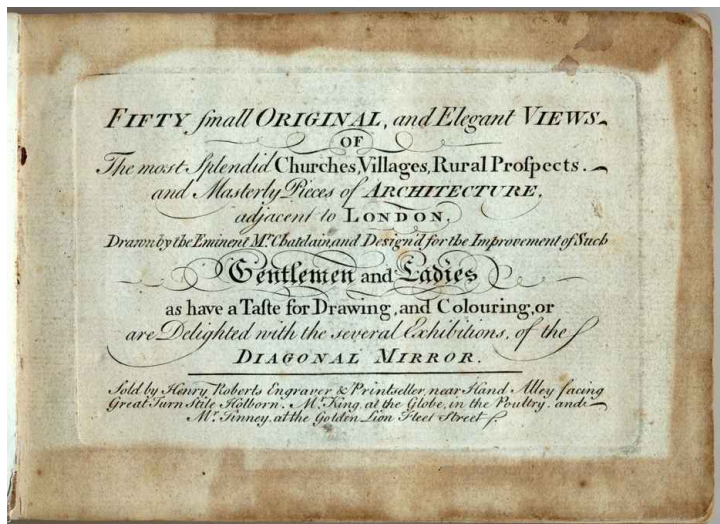 FIFTY ſmall ORIGINAL, and Elegant VIEWS
OF
The most Splendid Churches, Villages, Rural Proſpects.
and Masterly Pieces of ARCHITECTURE,
adjacent to LONDON,
Drawn by the Eminent Mr. Chatelain, and Design'd for the Improvement of Such
Gentlemen and Ladies
as have a Taſte for Drawing, and Colouring, or
are Delighted with the several Exhibitions, of the
DIAGONAL MIRROR.
Sold by Henry Roberts Engraver & Printseller, near Hand Alley facing
Great Turn Stile Holborn. Mr. King, at the Globe, in the Poultry. and
Mr. Tinney, at the Golden Lion Fleet Street